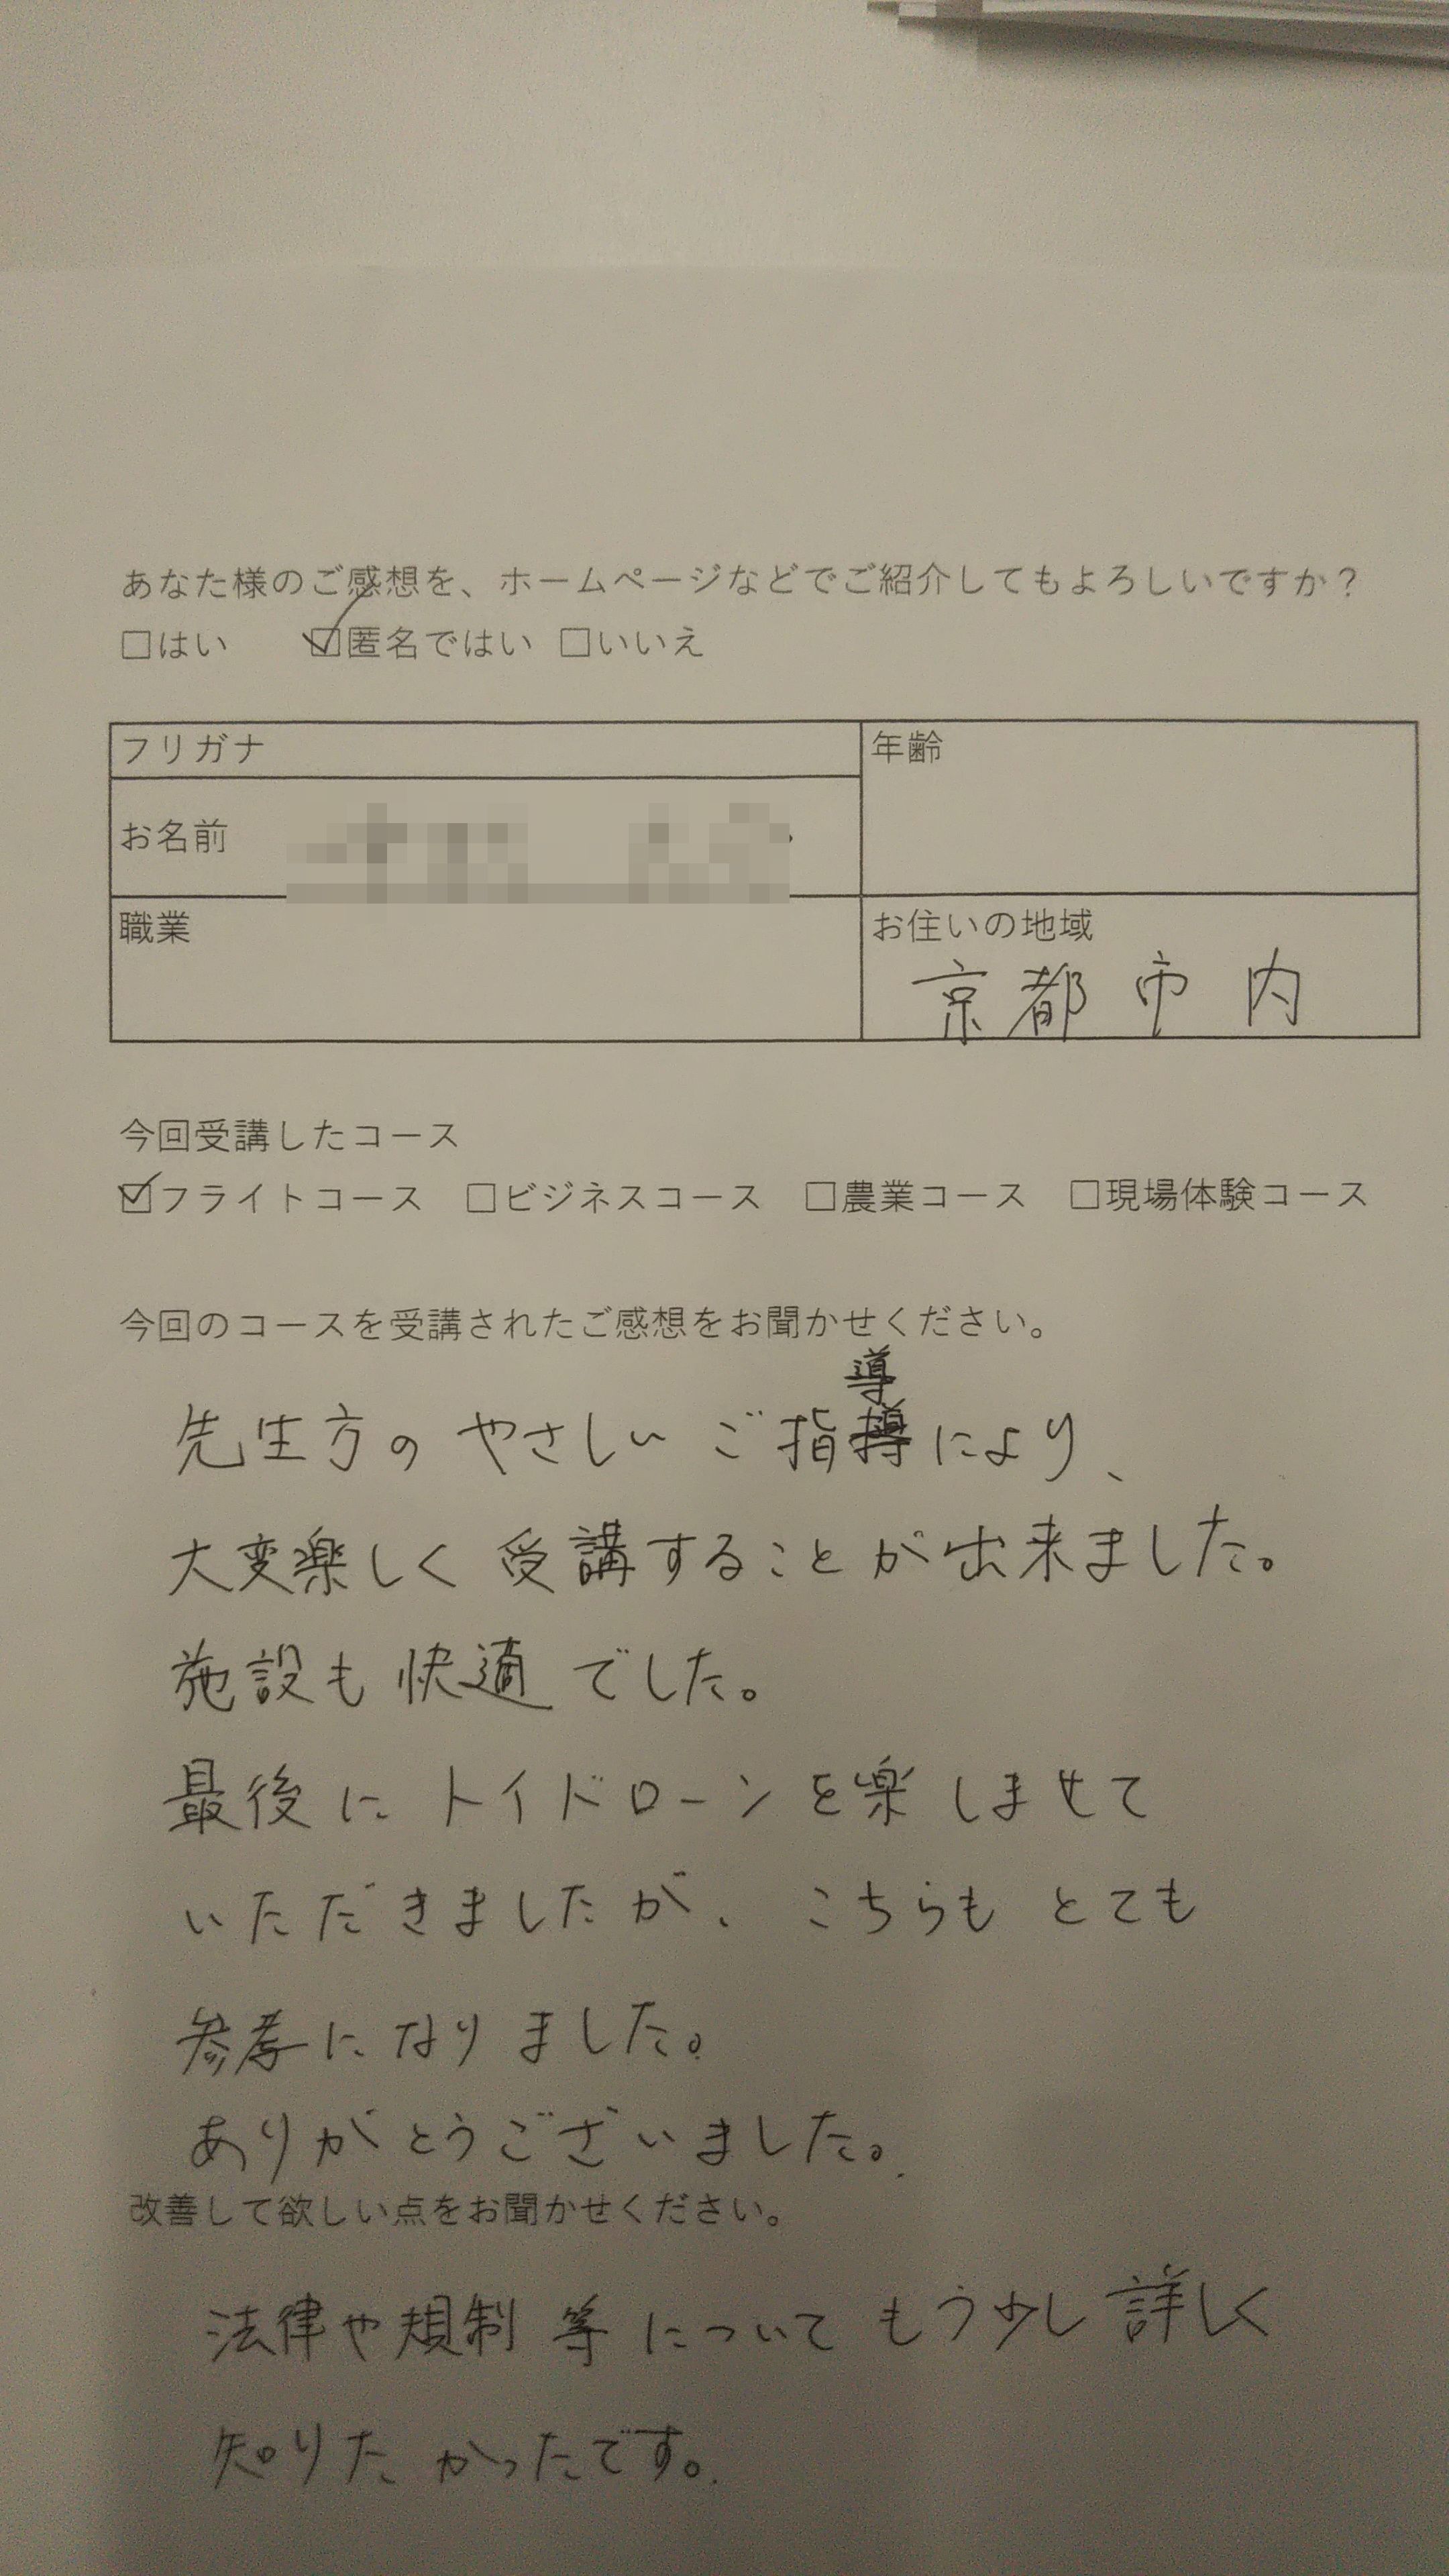 あなた様のご感想を、ホームページなどでご紹介してもよろしいですか？
□はい ☑匿名ではい □いいえ
フリガナ
年齢
お名前
職業
お住いの地域
京都市内
今回受講したコース
☑フライトコース □ビジネスコース □農業コース □現場体験コース
今回のコースを受講されたご感想をお聞かせください。
先生方のやさしいご指導により、
大変楽しく受講することが出来ました。
施設も快適でした。
最後にトイドローンを楽しませて
いただきましたが、こちらもとても
参考になりました。
ありがとうございました。
改善して欲しい点をお聞かせください。
法律や規制等についてもう少し詳しく
知りたかったです。